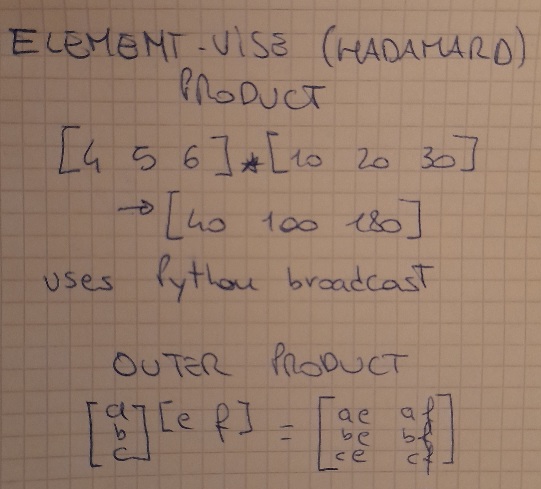 ELEMENT-VISE (HADAMARD)
PRODUCT
[4 5 6] * [10 20 30]
→ [40 100 180]
uses Python broadcast
OUTER PRODUCT
[a b c] [e f] = [ae af
be bf
ce cf]